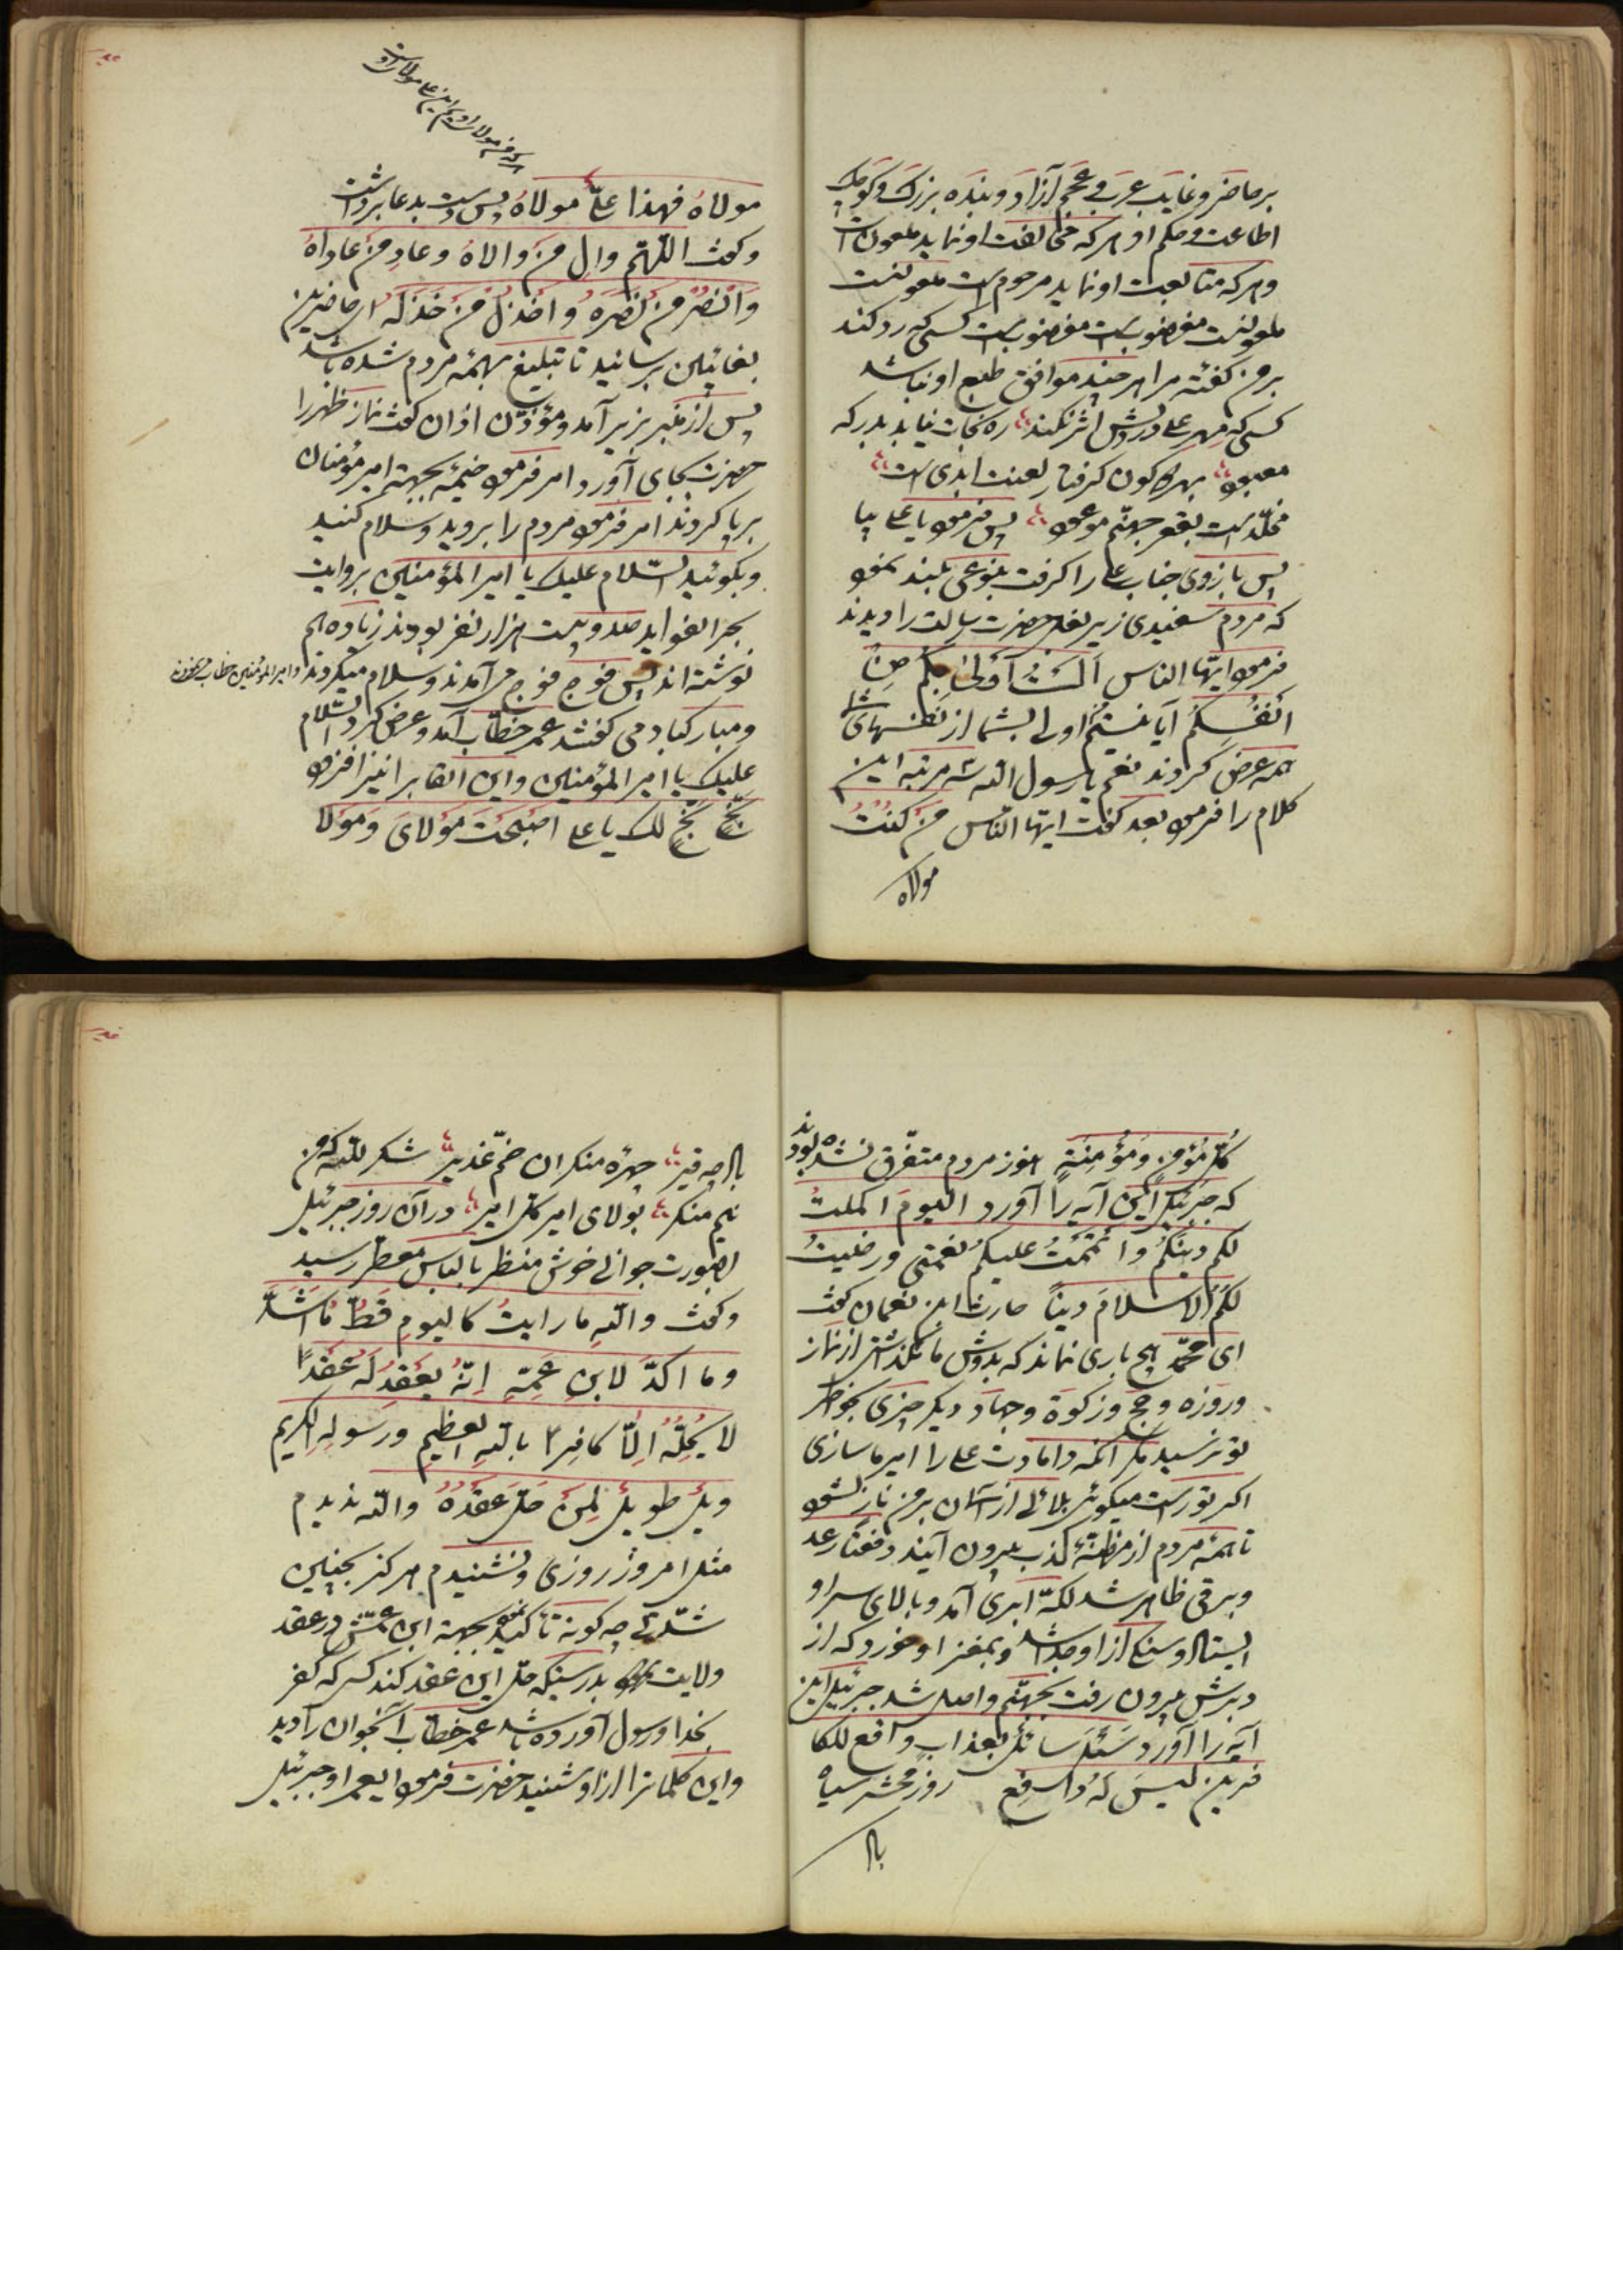 بر حاضر و غایب عرب و عجم آزاد و بنده بزرک و کوچک
اطاعت و حکم او هر که مخالفت او نماید ملعون است
و هر که متابعت او نماید مرحوم است ملعونست
ملعونست مغضوبست مغضوبست کسی که رد کند
بر من کفته مرا هر چند موافق طبع او نباشد
کسی که مهر علی در دلش اثر نکند ره نجات نیابد بدرکه
معبود بهر دو کون کرفتار لعنت ابدی است
مخلّد است بقعر جهنّم موعود پس فرمود یا علی بیا
پس بازوی جناب علی را کرفت بنوعی بلند نمود
که مردم سفیدی زیر بغل حضرت رسالت را دیدند
فرمود ایّها الناس اَلَستُ اَولیٰ بِکُم مِن
اَنفُسِکُم آیا نیستم اولی بشما از نفسهای شما
همه عرض کردند نعم یا رسول اللّه سه مرتبه این
کلام را فرمود بعد کفت ایّها النّاس مَن کُنتُ
مولاه
هر که من مولای اویم این علی مولای اوست
مولاهُ فهذا علیٌّ مولاهُ پس دست بدعا برداشت
و کفت اللّهمّ والِ مَن والاهُ و عادِ مَن عاداهُ
وَانصُر مَن نَصَرَهُ وَاخذُل مَن خَذَلَهُ ای حاضرین
بغائبین برسانید تا تبلیغ بهمه مردم شده باشد
پس از منبر بزیر آمد و مؤذّن اذان کفت نماز ظهر را
حضرت بجای آورد امر فرمود خیمه بجهة امیر مؤمنان
بر پا کردند امر فرمود مردم را بروید و سلام کنید
و بکوئید السّلام علیک یا امیر المؤمنین بروایت
بحر الفواید صد و بیست هزار نفر بودند زیاده هم
نوشته اند پس فوج فوج می آمدند و سلام میکردند و امیر المؤمنین خطاب میخواندند
و مبارکباد می کفتند عمر خطّاب آمد و عرض کرد السّلام
علیک یا امیر المؤمنین و این القاب را نیز افزود
بَخٍّ بَخٍّ لک یا علی اصبَحتَ مَولایَ وَ مَولا
کلّ مُؤمنٍ وَ مُؤمِنَةٍ هنوز مردم متفّرق نشده بودند
که جبرئیل این آیه را آورد الیومَ اکملتُ
لکم دینَکُم و اَتمَمتُ علیکُم نعمتی و رضیتُ
لَکُمُ الاسلامَ دیناً حارث ابن نعمان کفت
ای محمّد هیچ باری نماند که بدوش ما نکذاشتی از نماز
و روزه و حج و زکوة و جهاد دیکر چیزی بخاطر
تو نرسید مکر آنکه دامادت علی را امیر ما سازی
اکر تو راست میکوئی بلائی از آسمان بر من نازل شود
تا همه مردم از مظنّهٔ کذب بیرون آیند دفعةً رعد
و برقی ظاهر شد لکهٔ ابری آمد و بالای سر او
ایستاد و سنکی از او جدا شد و بمغز او خورد که از
دبرش بیرون رفت بجهنّم واصل شد جبرئیل این
آیه را آورد سَئَلَ سائلٌ بعذابٍ واقع للکا
فرین لَیسَ لَهُ دافع روز محشر سیاه
باد
باد چو قیر چهره منکران خمّ غدیر شکر للّه که من
نیم منکر بولای امیر کلّ امیر در آن روز جبرئیل
بصورت جوانی خوش منظر با لباس معطر رسید
و کفت واللّهِ ما رایتُ کالیومِ قَطُّ ما اَشَدَّ
و ما اکدّ لابنِ عَمِّهِ اِنّهُ یَعقِدُ لَهُ عَقداً
لا یَحِلّهُ اِلّا کافِرا باللّهِ العظیمِ و رسولهِ الکریم
ویلٌ طویلٌ لِمَن حَلَّ عَقدَهُ واللّه ندیدم
مثل امروز روزی و نشنیدم هرکز بچنین
شدّتی چه کونه تأکید نمود بجهة ابن عمّش در عقد
ولایت بدرستیکه حلّ این عقد کند کسی که کفر
بخدا و رسول آورده باشد عمر خطّاب آنجوان را دید
و این کلماترا از او شنید حضرت فرمود ایعمر او جبرئیل